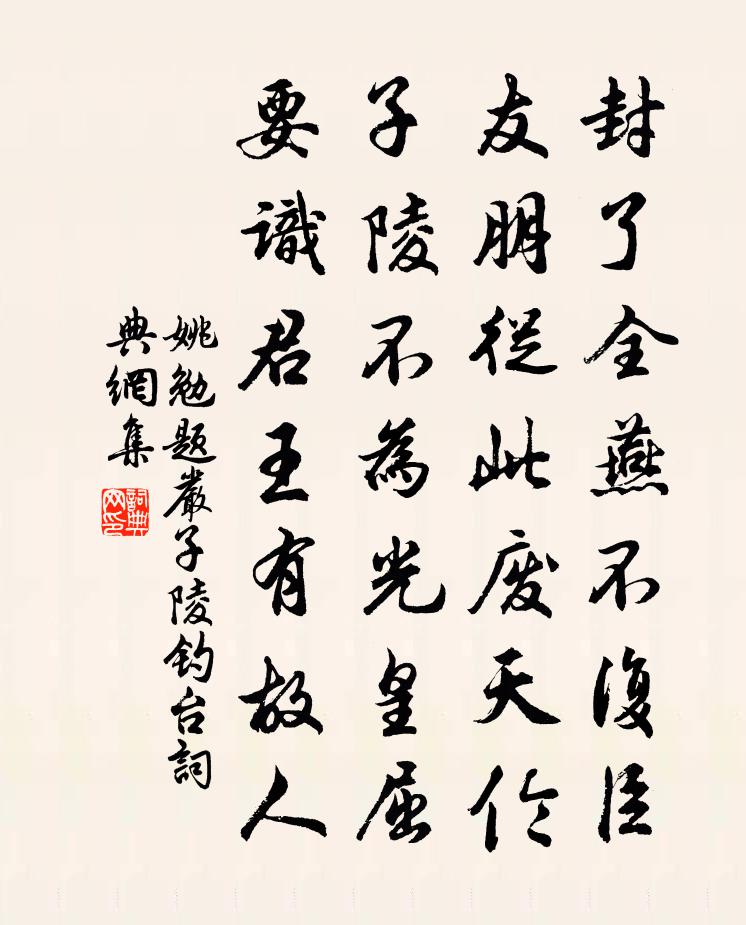 封了全燕不復臣
友朋從此廢天倫
子陵不為光皇屈
要識君王有故人
姚勉題嚴子陵钓台詞
典網集
詞典
网印